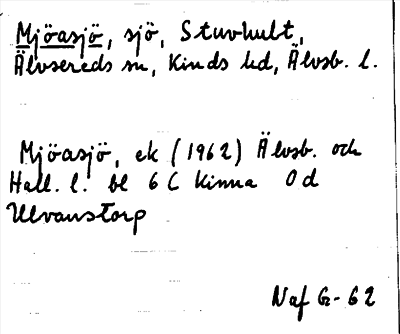 Mjöasjö, sjö, Stuvhult,
Älvsereds sn, Kinds hd, Älvsb. l.
Mjöasjö, ek (1962) Älvsb. och
Hall. l. bl 6 C Kinna 0 d
Ulvanstorp
Naf G-62